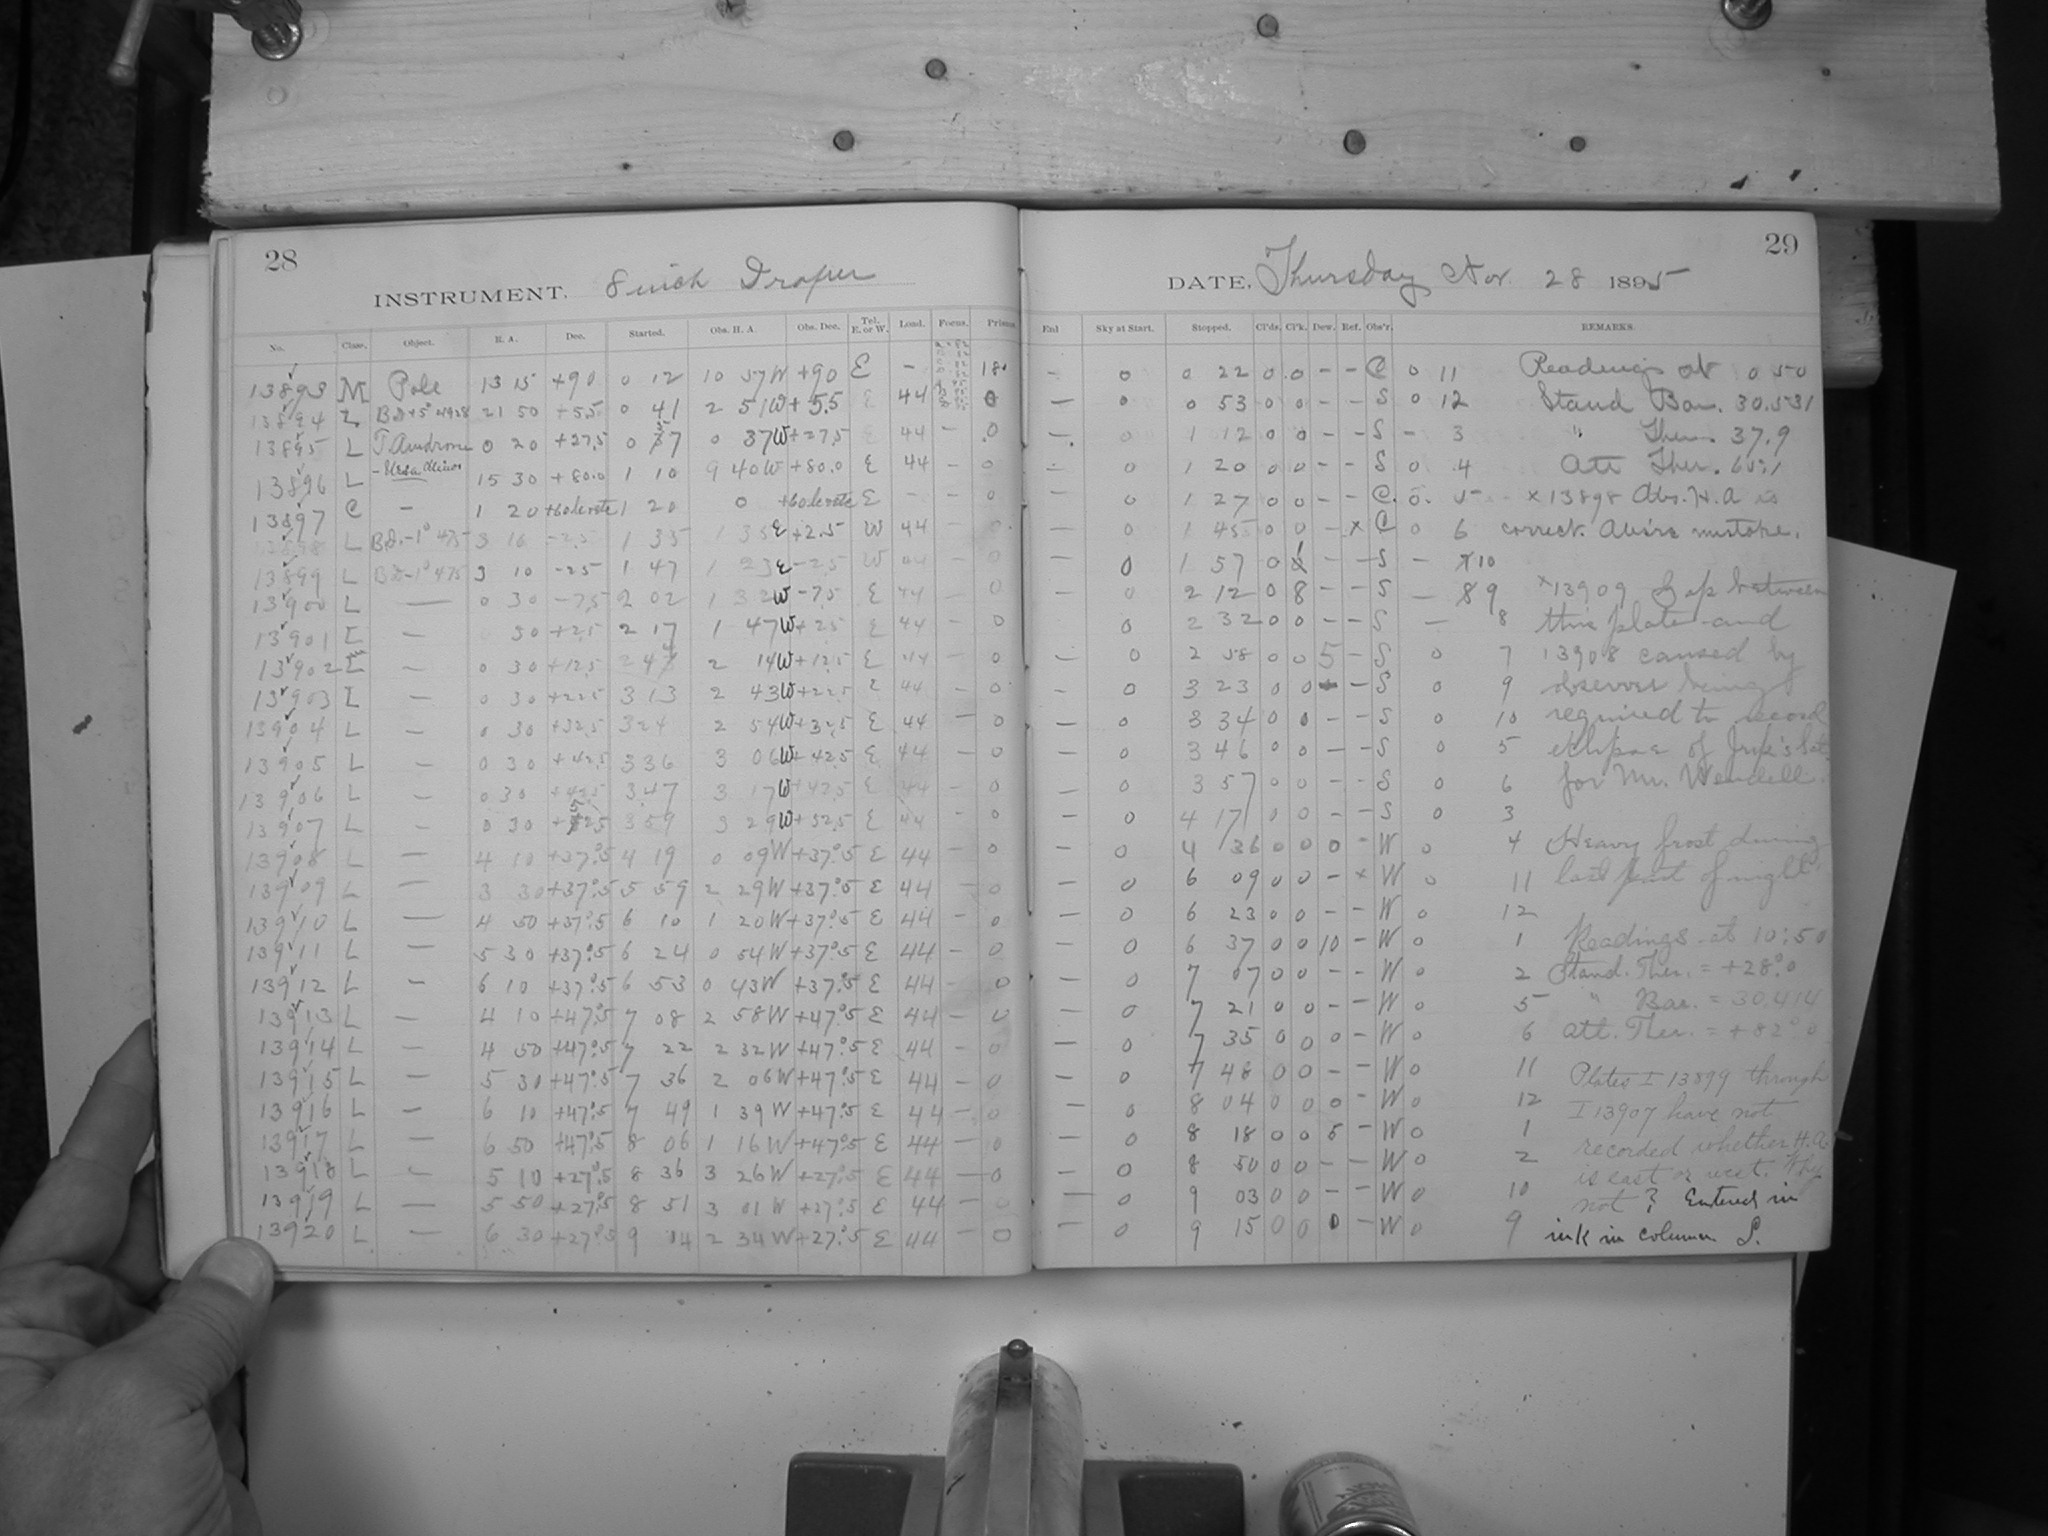 28
INSTRUMENT. 8 inch Draper
No. Class. Object. R. A. Dec. Started. Obs. H. A. Obs. Dec. Tel. E. or W. Load. Focus. Prisms
13893 M Pole 13 15 +90 0 12 10 57 W +90 E - 18.
13894 L 21 50 +5.5 0 41 2 51 W +5.5 E 44 0
13895 L T Androm 0 20 +27.5 0 37 W +27.5 E 44 - 0
13896 L - Ursa Minor 15 30 +80.0 1 10 9 40 W +80.0 E 44 - 0
13897 C - 1 20 1 20 0 E - - 0
13898 L B.D. -1° 475 3 10 -2.5 1 35 1 35 E +2.5 W 44 - 0
13899 L B.D. -1° 475 3 10 -2.5 1 47 1 23 E -2.5 W 44 - 0
13900 L — 0 30 -7.5 2 02 1 32 W -7.5 E 44 - 0
13901 L — 30 +2.5 2 17 1 47 W +2.5 E 44 - 0
13902 L — 0 30 +12.5 2 44 2 14 W +12.5 E 44 - 0
13903 L — 0 30 +22.5 3 13 2 43 W +22.5 E 44 - 0
13904 L — 0 30 +32.5 3 24 2 54 W +32.5 E 44 - 0
13905 L — 0 30 +42.5 3 36 3 06 W +42.5 E 44 - 0
13906 L — 0 30 +42.5 3 47 3 17 W +42.5 E 44 - 0
13907 L — 0 30 +52.5 3 59 3 29 W +52.5 E 44 - 0
13908 L — 4 10 +37°.5 4 19 0 09 W +37°.5 E 44 - 0
13909 L — 3 30 +37°.5 5 59 2 29 W +37°.5 E 44 - 0
13910 L — 4 50 +37°.5 6 10 1 20 W +37°.5 E 44 - 0
13911 L — 5 30 +37°.5 6 24 0 54 W +37°.5 E 44 - 0
13912 L — 6 10 +37°.5 6 53 0 43 W +37°.5 E 44 - 0
13913 L — 4 10 +47°.5 7 08 2 58 W +47°.5 E 44 - 0
13914 L — 4 50 +47°.5 7 22 2 32 W +47°.5 E 44 - 0
13915 L — 5 30 +47°.5 7 36 2 06 W +47°.5 E 44 - 0
13916 L — 6 10 +47°.5 7 49 1 39 W +47°.5 E 44 - 0
13917 L — 6 50 +47°.5 8 06 1 16 W +47°.5 E 44 - 0
13918 L — 5 10 +27°.5 8 36 3 26 W +27°.5 E 44 - 0
13919 L — 5 50 +27°.5 8 51 3 01 W +27°.5 E 44 - 0
13920 L — 6 30 +27°.5 9 04 2 34 W +27°.5 E 44 - 0
29
DATE, Thursday Nov. 28 1895
Enl Sky at Start. Stopped. Cl'ds. Cl'k. Dew. Ref. Obs'r. REMARKS.
- 0 0 22 0 0 - - C 0 11 Readings at 0 50
- 0 0 53 0 0 - - S 0 12 Stand Bar. 30.531
- 0 1 12 0 0 - - S - 3 " Ther. 37.9
- 0 1 20 0 0 - - S 0 4 Att Ther.
- 0 1 27 0 0 - - C 0 5 x 13898 Obs. H. A is
- 0 1 45 0 0 - x C 0 6 correct. Above mistake.
- 0 1 57 0 - - S - 10
- 0 2 12 0 8 - - S - 9 x 13909 Gap between
0 2 32 0 0 - - S - 8 this plate and
- 0 2 58 0 0 5 - S 0 7 13908 caused by
- 0 3 23 0 0 - - S 0 9 observer being
- 0 3 34 0 0 - - S 0 10 required to record
- 0 3 46 0 0 - - S 0 5 eclipse of Jup's Sat
- 0 3 57 0 0 - - S 0 6 for Mr. Wendell.
- 0 4 17 0 0 - - S 0 3
- 0 4 36 0 0 0 - W 0 4 Heavy frost during
- 0 6 09 0 0 - x W 0 11 last part of night
- 0 6 23 0 0 - - W 0 12
- 0 6 37 0 0 10 - W 0 1 Readings at 10:50
- 0 7 07 0 0 - - W 0 2 Stand. Ther. = +28°.0
- 0 7 21 0 0 - - W 0 5 " Bar. = 30.414
- 0 7 35 0 0 0 - W 0 6 Att. Ther. = +82°.0
- 0 7 48 0 0 - - W 0 11 Plates I 13899 through
- 0 8 04 0 0 0 - W 0 12 I 13907 have not
- 0 8 18 0 0 5 - W 0 1 recorded whether H.A.
- 0 8 50 0 0 - - W 0 2 is east or west. Why
- 0 9 03 0 0 - - W 0 10 not? Entered in
- 0 9 15 0 0 0 - W 0 9 ink in column S.